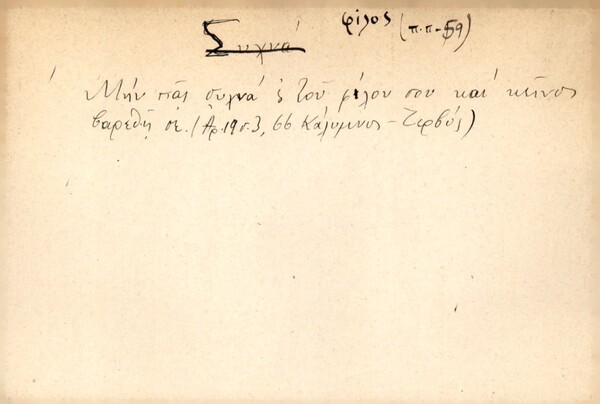 Συχνά φίλος (π.π-59)
Μήν πᾷς συχνά ς τοῦ φίλου σου καί κεῖνος
βαρεθῇ σε. (Αρ. 19 σ. 3, 66 Κάλυμνος -